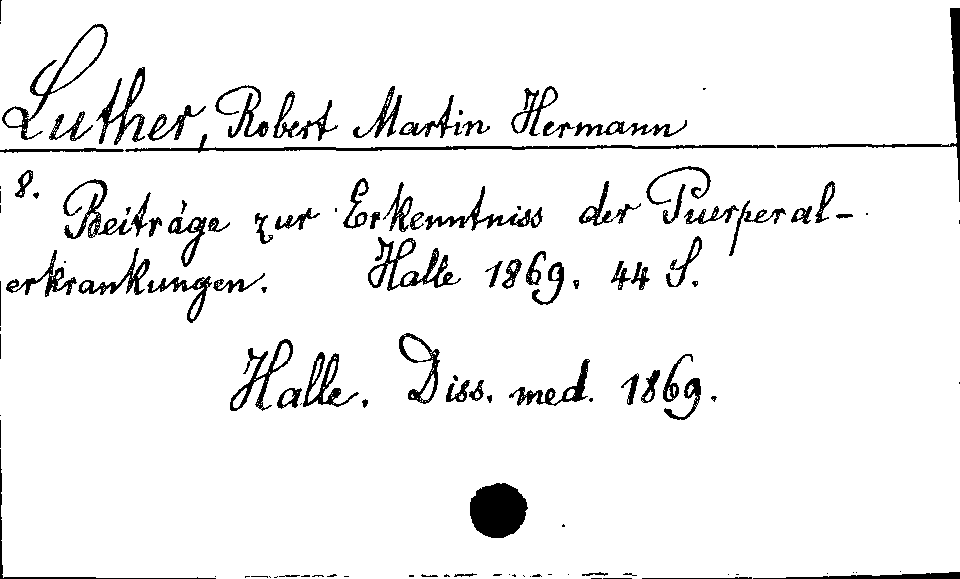 Luther, Robert Martin Hermann
8.
Beiträge zur Erkenntniss der Puerperal-
erkrankungen. Halle 1869. 44 S.
Halle. Diss. med. 1869.